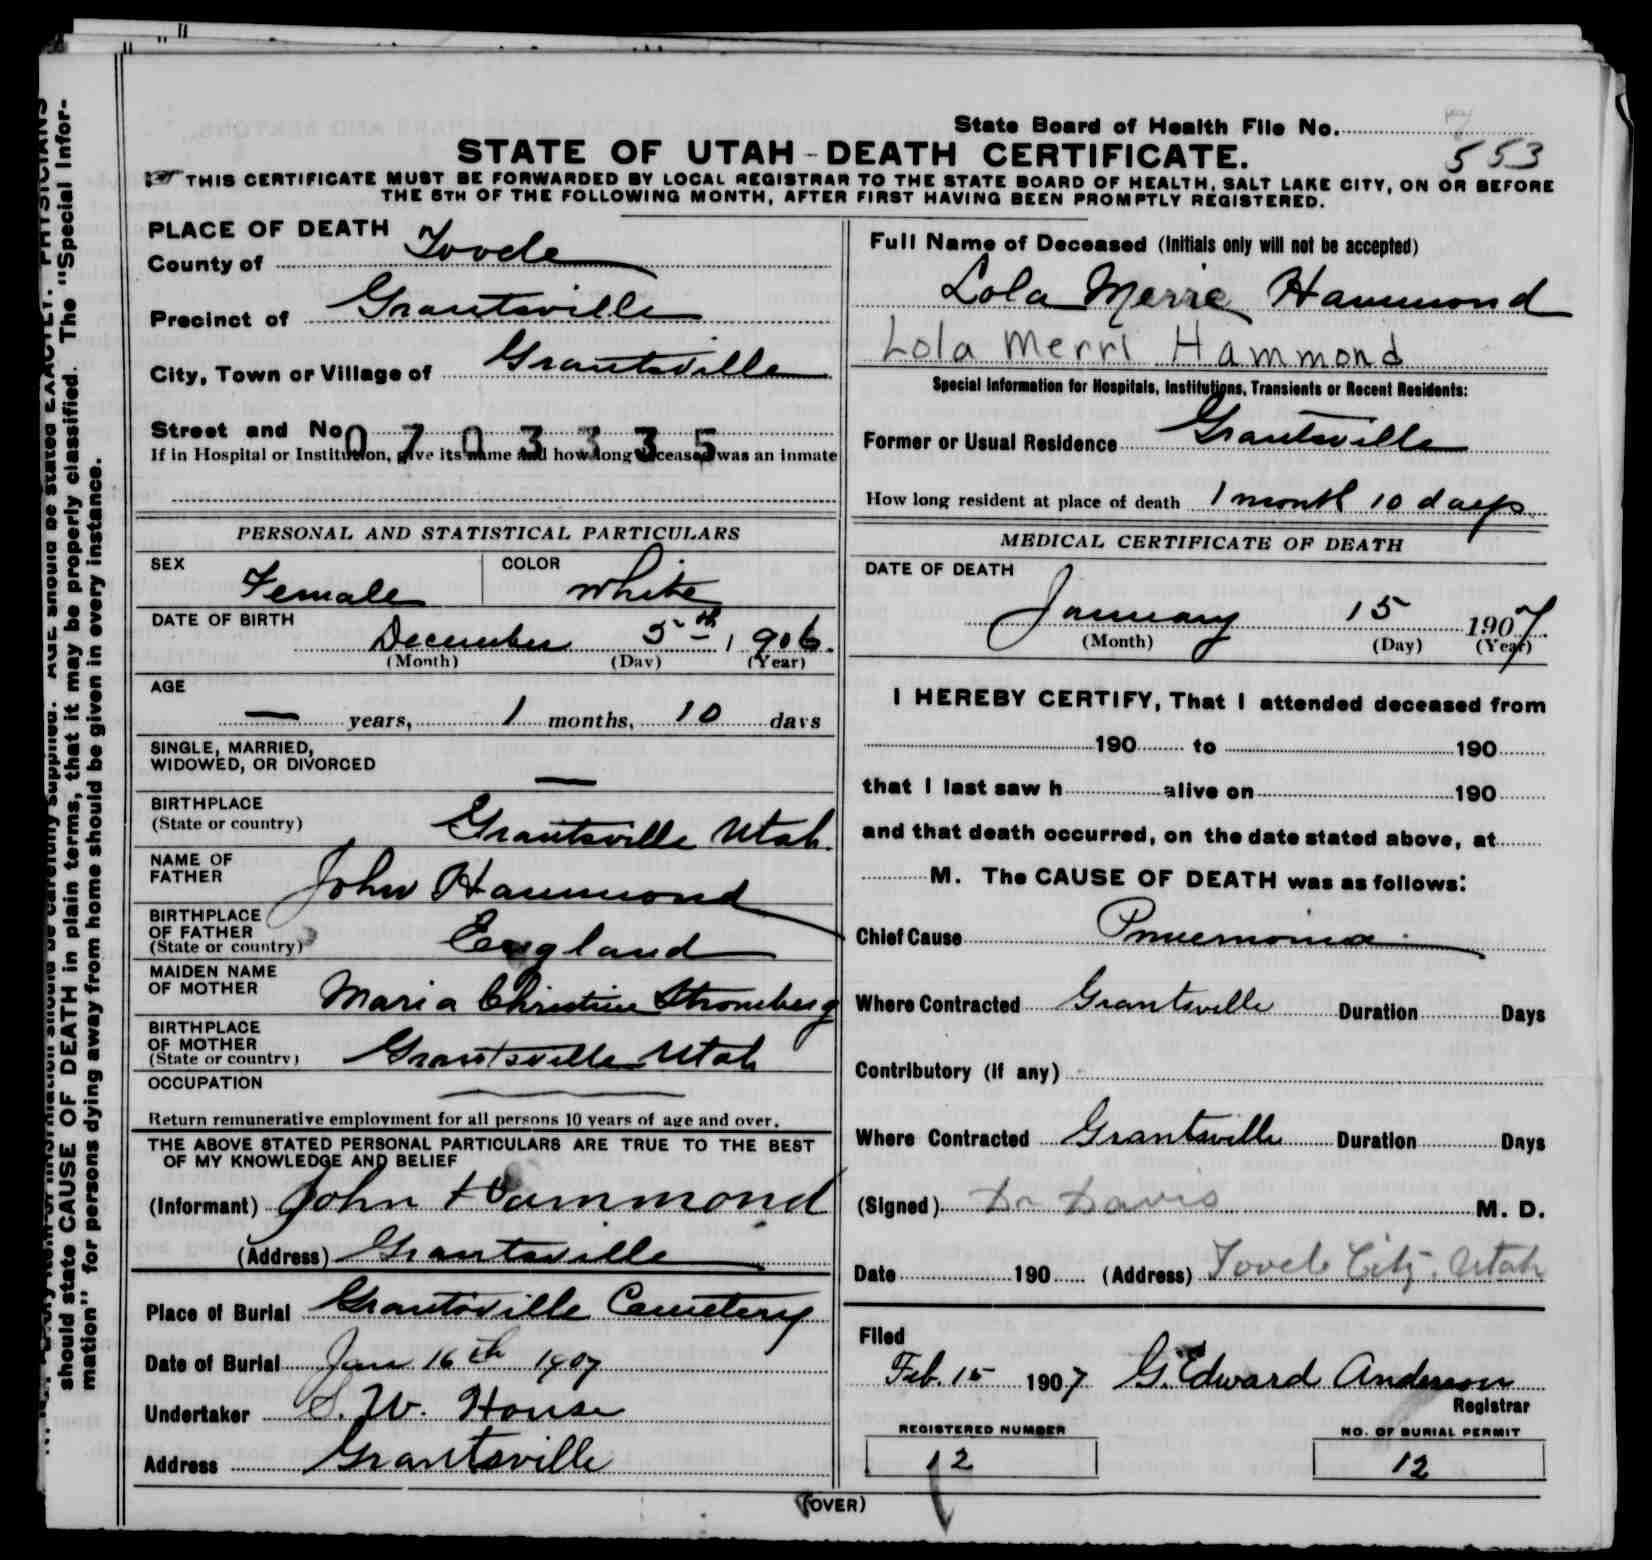 State Board of Health File No.
553
STATE OF UTAH - DEATH CERTIFICATE.
THIS CERTIFICATE MUST BE FORWARDED BY LOCAL REGISTRAR TO THE STATE BOARD OF HEALTH, SALT LAKE CITY, ON OR BEFORE
THE 5TH OF THE FOLLOWING MONTH, AFTER FIRST HAVING BEEN PROMPTLY REGISTERED.
PLACE OF DEATH
County of Tooele
Precinct of Grantsville
City, Town or Village of Grantsville
Street and No
0703335
If in Hospital or Institution, give its name and how long deceased was an inmate
PERSONAL AND STATISTICAL PARTICULARS
SEX Female COLOR White
DATE OF BIRTH
December 5th 1906.
(Month) (Day) (Year)
AGE
— years, 1 months, 10 days
SINGLE, MARRIED,
WIDOWED, OR DIVORCED —
BIRTHPLACE
(State or country) Grantsville Utah.
NAME OF
FATHER John Hammond
BIRTHPLACE
OF FATHER
(State or country) England
MAIDEN NAME
OF MOTHER Maria Christine Stromberg
BIRTHPLACE
OF MOTHER
(State or country) Grantsville Utah
OCCUPATION
Return remunerative employment for all persons 10 years of age and over.
THE ABOVE STATED PERSONAL PARTICULARS ARE TRUE TO THE BEST
OF MY KNOWLEDGE AND BELIEF
(Informant) John Hammond
(Address) Grantsville
Place of Burial Grantsville Cemetery
Date of Burial Jan 16th 1907
Undertaker S. W. House
Address Grantsville
Full Name of Deceased (Initials only will not be accepted)
Lola Merrie Hammond
Lola Merri Hammond
Special Information for Hospitals, Institutions, Transients or Recent Residents:
Former or Usual Residence Grantsville
How long resident at place of death 1 month 10 days
MEDICAL CERTIFICATE OF DEATH
DATE OF DEATH
January 15 1907
(Month) (Day) (Year)
I HEREBY CERTIFY, That I attended deceased from
190 to 190
that I last saw h alive on 190
and that death occurred, on the date stated above, at
M. The CAUSE OF DEATH was as follows:
Chief Cause Pnuemonia
Where Contracted Grantsville Duration Days
Contributory (if any)
Where Contracted Grantsville Duration Days
(Signed) Dr Davis M. D.
Date 190 (Address) Tooele City, Utah
Filed
Feb. 15 1907 G. Edward Anderson
Registrar
REGISTERED NUMBER
12
NO. OF BURIAL PERMIT
12
(OVER)
should state CAUSE OF DEATH in plain terms, that it may be properly classified. The "Special Infor-
mation" for persons dying away from home should be given in every instance.